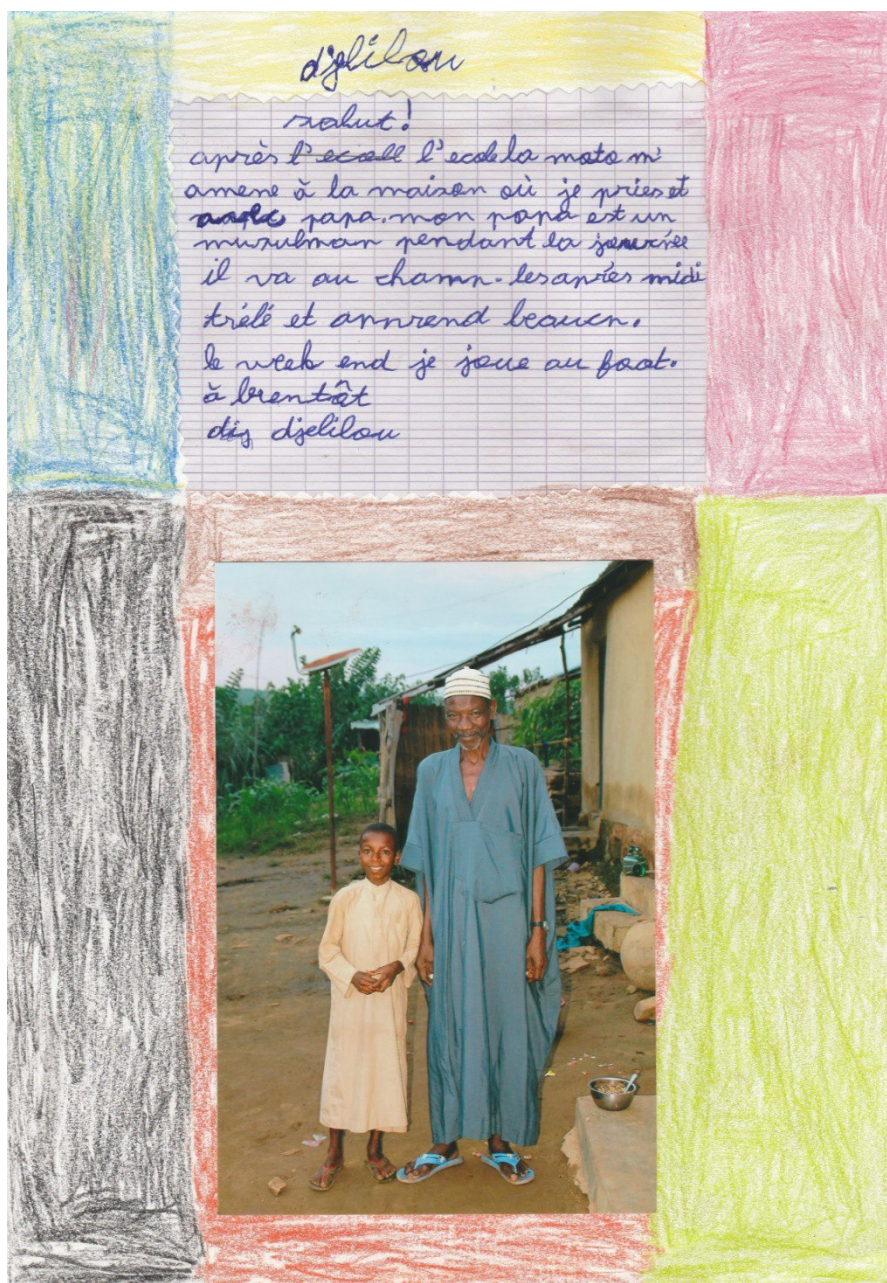 djelilou
salut!
après l'ecole la moto m'
amene à la maison où je pries et
papa. mon papa est un
musulman pendant la journée
il va au champ. les après midi
télé et apprend beaucp.
le week end je joue au foot.
à brentôt
djelilou